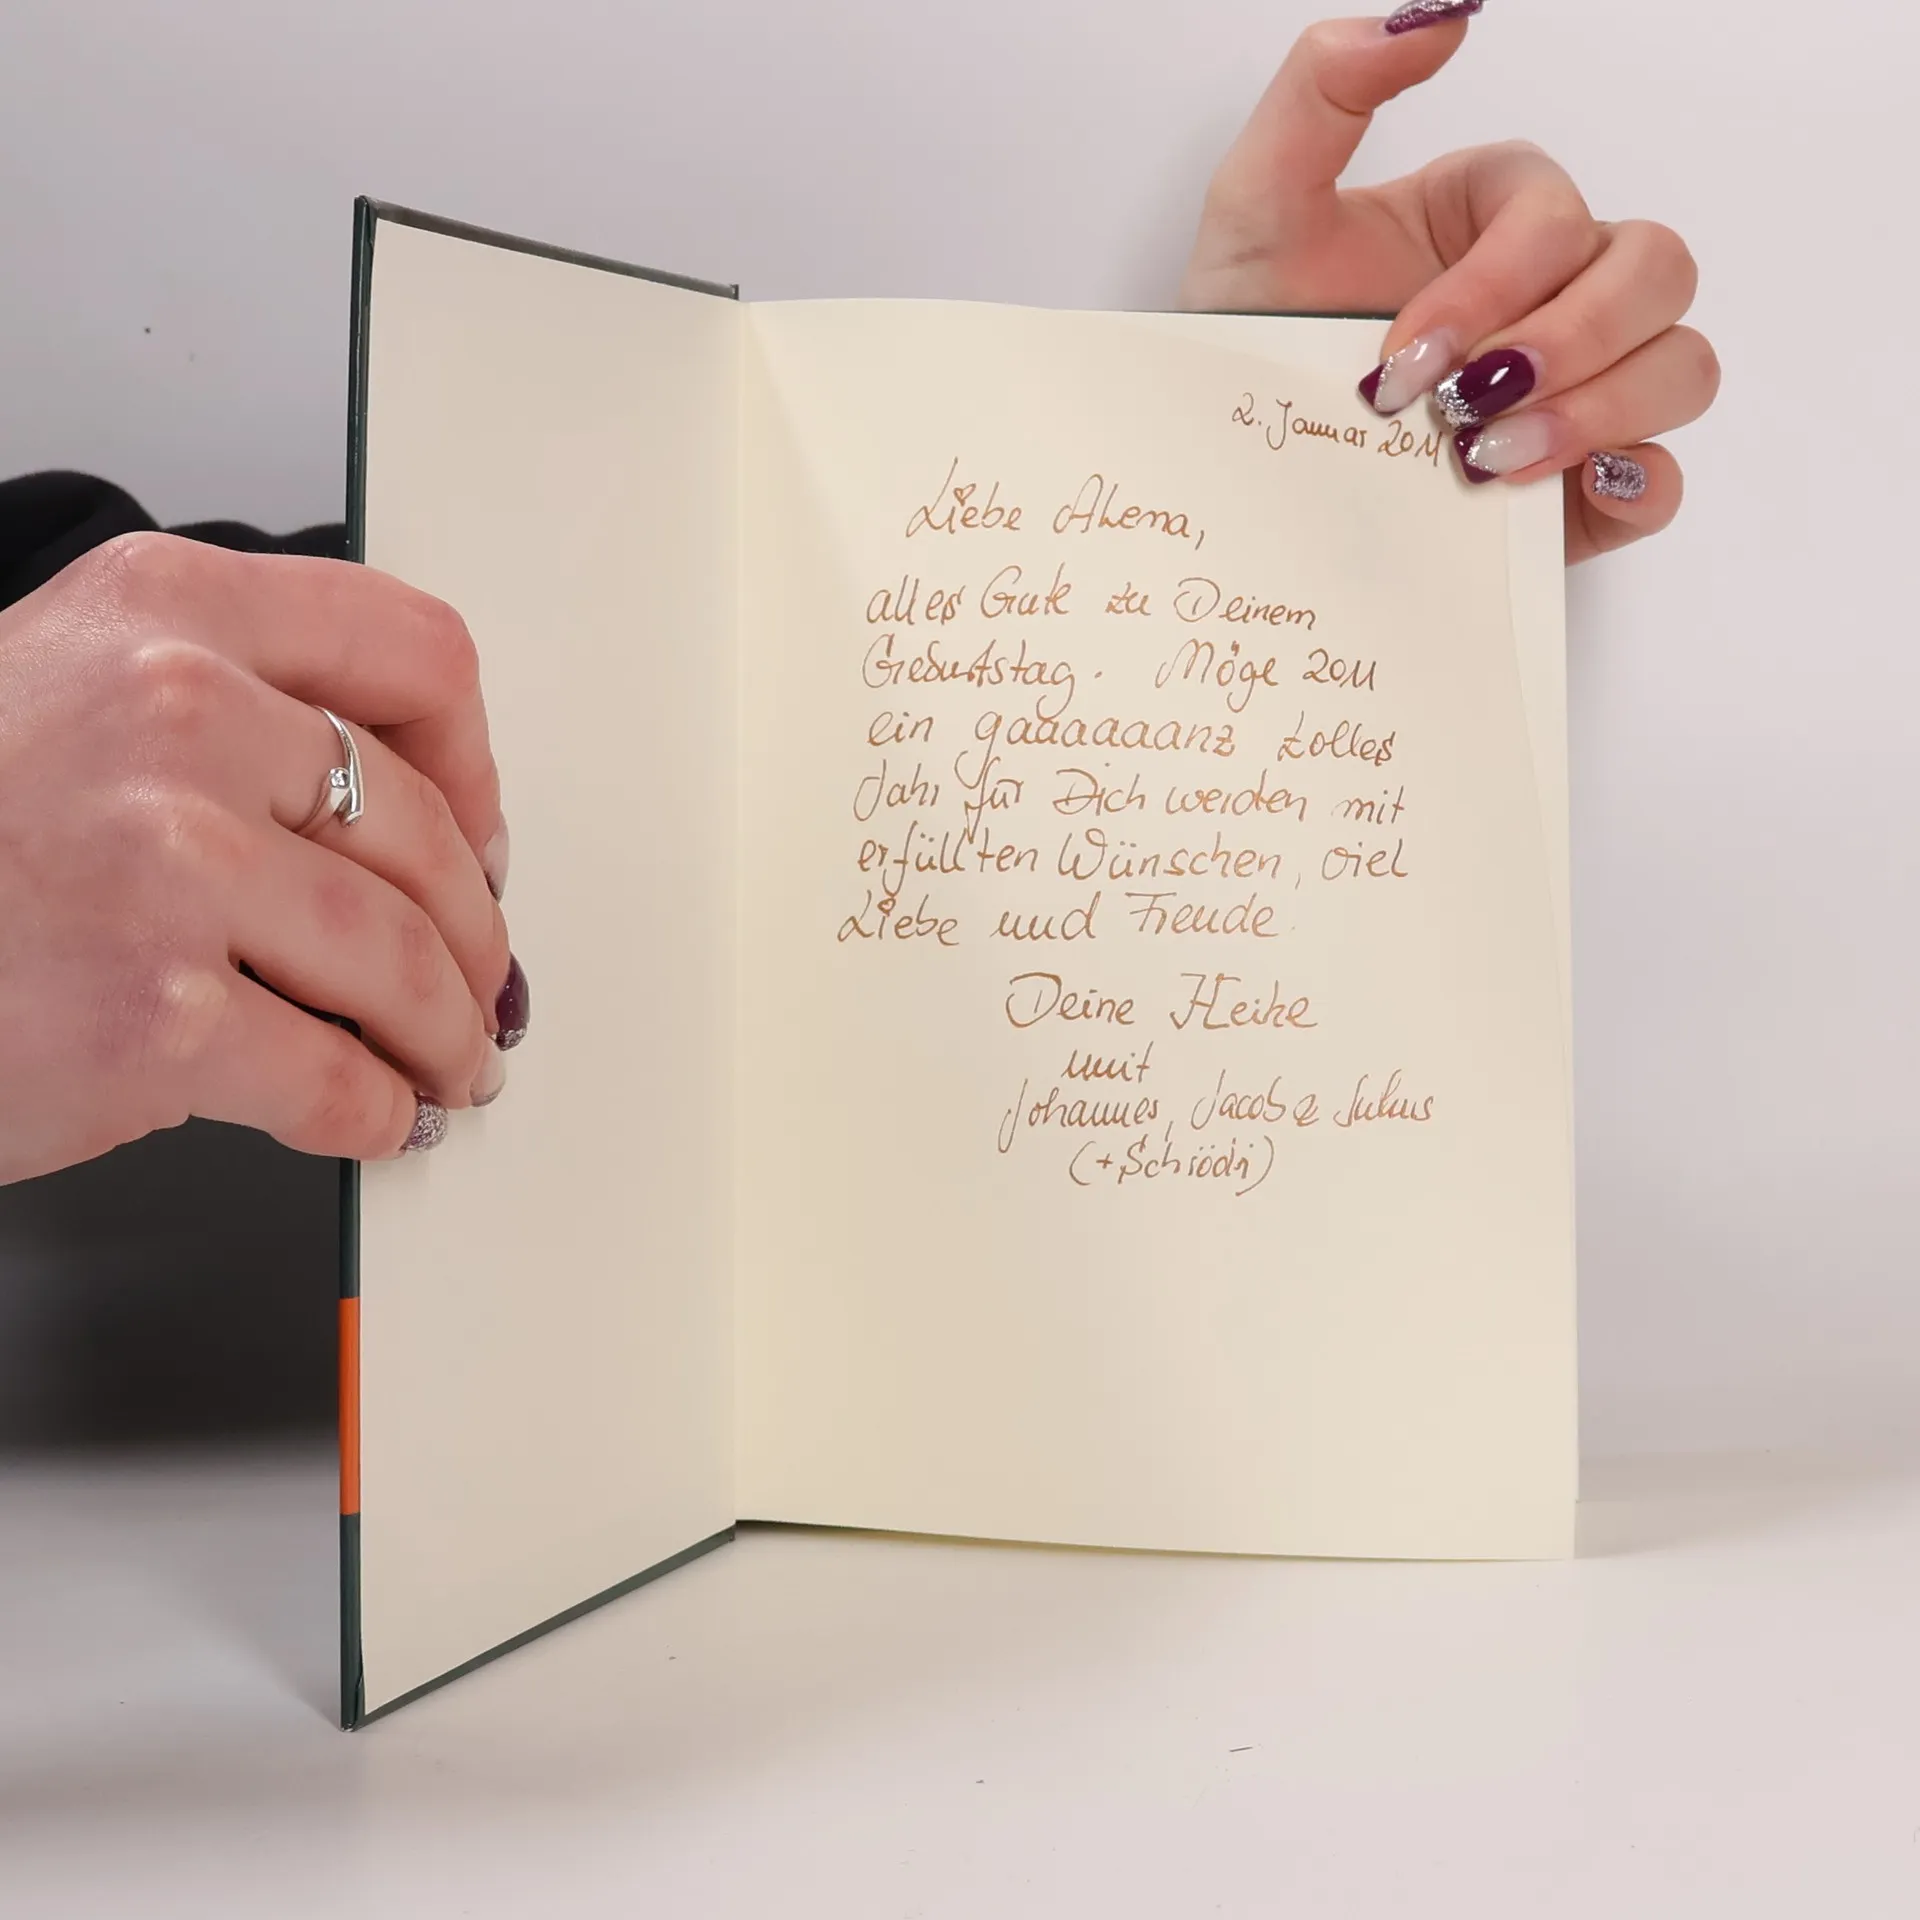 2. Januar 2011
Liebe Ahena,
alles Gute zu Deinem
Geburtstag. Möge 2011
ein gaaaaaaanz tolles
Jahr für Dich werden mit
erfüllten Wünschen, viel
Liebe und Freude.
Deine Heike
mit
Johannes, Jacob & Julius
(+ Schrödi)